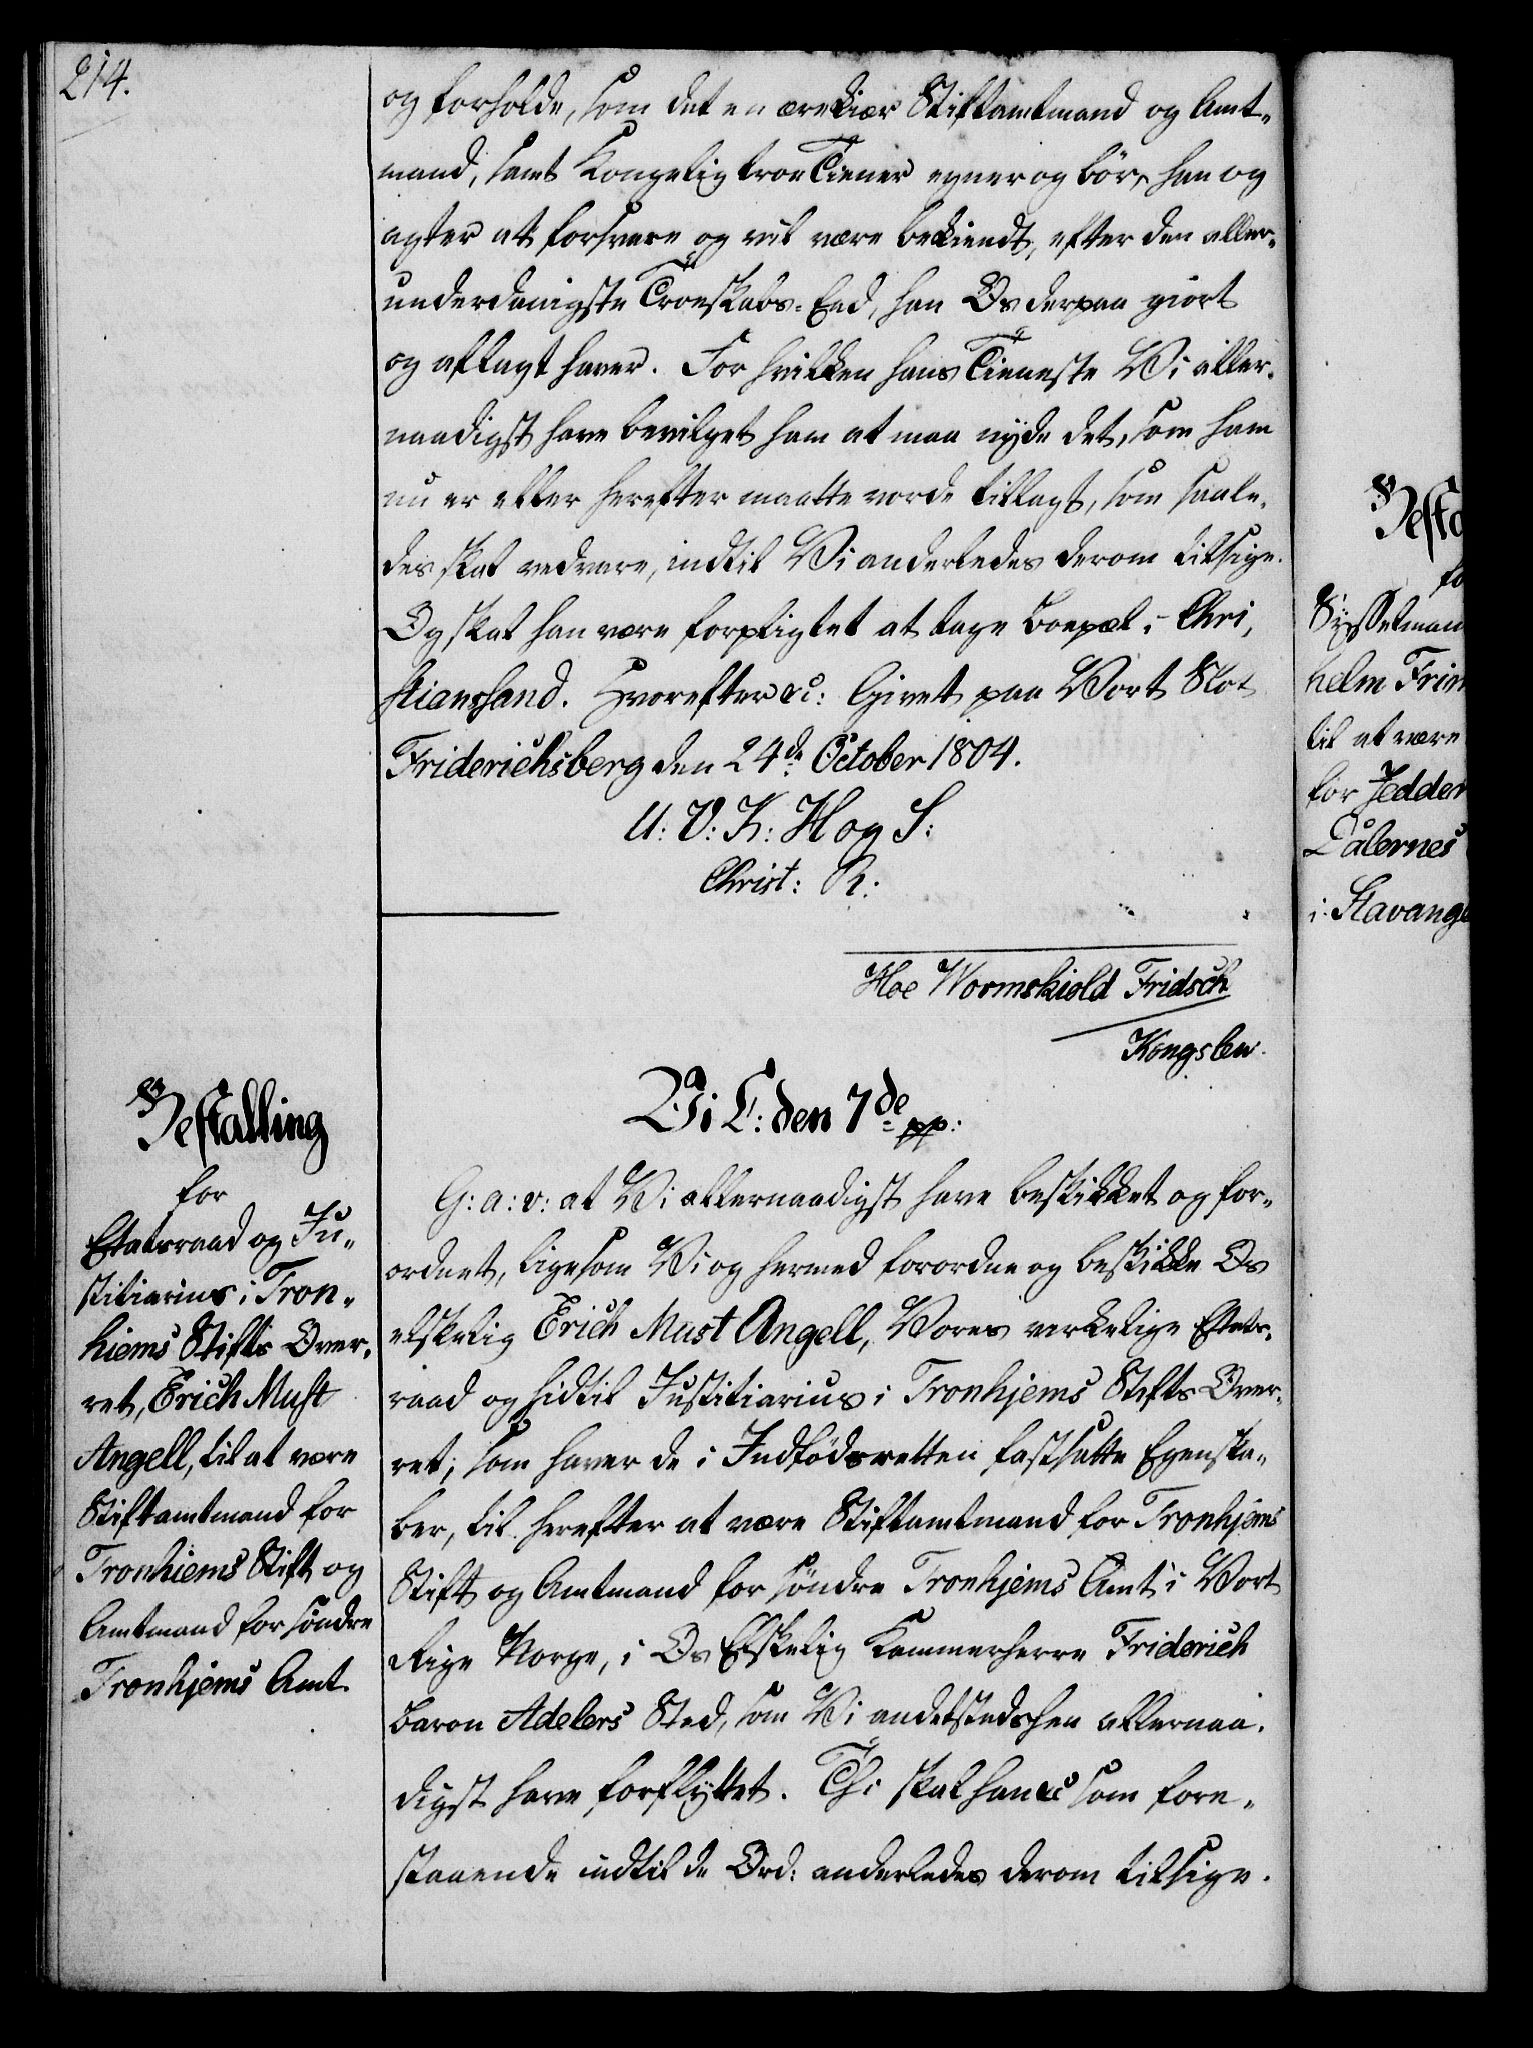 214.
og forholde, som det en ærekiær Stiftamtmand og Amt-
mand, samt Kongelig troe Tiener egner og bör, han og
agter at forsvare og vil være bekiendt, efter den aller-
underdanigste Troeskabs-Eed, han Os derpaa giort
og aflagt haver. For hvilken hans Tieneste Vi aller-
naadigst have bevilget ham at maa nyde det, som ham
nu er eller herefter maatte vorde tillagt, som saale-
des skal vedvare, indtil Vi anderledes derom tilsige.
Og skal han være forpligtet at tage Boepæl i Chri,
stiansand. Hvorefter &c: Givet paa Vort Slot
Friderichsberg den 24de October 1804.
U: V: K: H og S:
Christ: R:
Moe Wormskiold Fridsch
Kongslew.
Bestalling
for
Etatsraad og Ju-
stitiarius i Tron-
hiems Stifts Over-
ret, Erich Must
Angell, til at være
Stiftamtmand for
Tronhiems Stift og
Amtmand for söndre
Tronhjems Amt.
Vi C: den 7de pp:
G: a: v: at Vi allernaadigst have beskikket og for-
ordnet, ligesom Vi og hermed forordne og beskikke Os
elskelig Erich Must Angell, Vores virkelige Etats-
raad og hidtil Justitiarius i Tronhjems Stifts Over-
ret, som haver de i Indfödsretten fastsatte Egenska-
ber, til herefter at være Stiftamtmand for Tronhjems
Stift og Amtmand for söndre Tronhjems Amt i Vort
Rige Norge, i Os Elskelig Kammerherre Friderich
Baron Adelers Sted, som Vi andetstedshen allernaa-
digst have forflyttet. Thi skal han &c som fore-
staaende indtil de Ord: anderledes derom tilsige.
Besta
fo
Sysselman
helm Frim
til at være
for Jedder
Dalernes
i Stavange